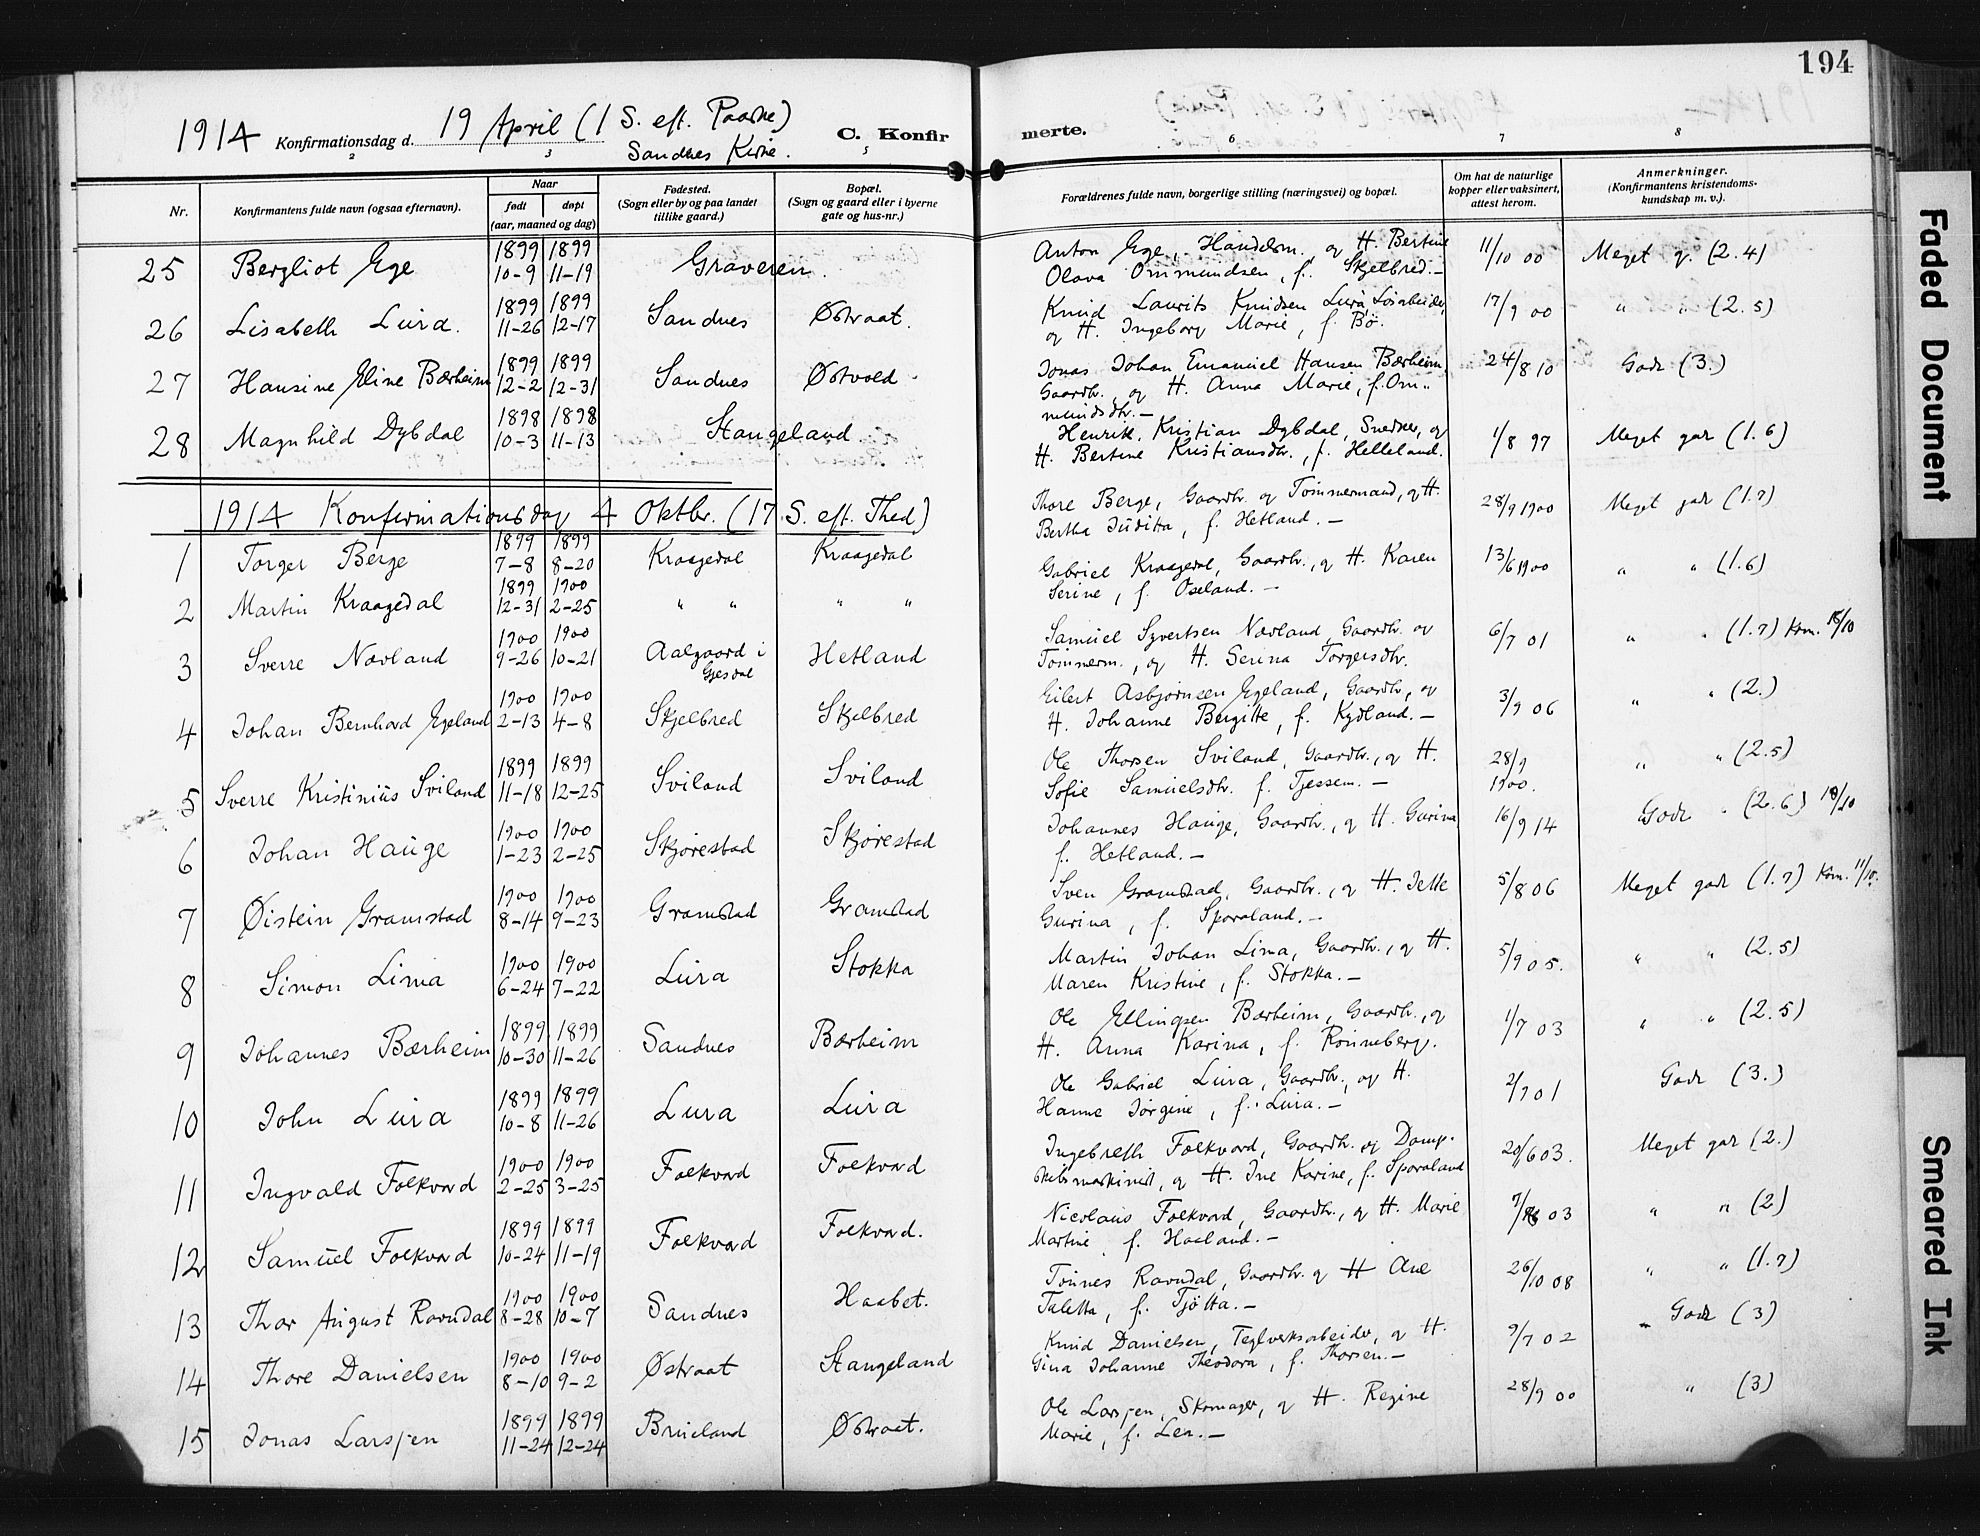 194
1914 Konfirmationsdag d. 19 April (1 S. eft. Paaske) C. Konfirmerte.
Sandnes Kirke.
2 3 5 6 7 8
Nr. Konfirmantens fulde navn (ogsaa efternavn). Naar født døpt (aar, maaned og dag) Fødested. (Sogn eller by og paa landet tillike gaard.) Bopæl. (Sogn og gaard eller i byerne gate og hus-nr.) Forældrenes fulde navn, borgerlige stilling (næringsvei) og bopæl. Om hat de naturlige kopper eller vaksinert, attest herom. Anmerkninger. (Konfirmantens kristendomskundskap m. v.).
25 Bergliot Ege 1899 10-9 1899 11-19 Graveren. Anton Ege, Handelsm., og H. Bertine
Olava Ommundsen, f. Skjelbred.— 11/10 00 Meget g. (2.4)
26 Lisabeth Lura. 1899 11-26 1899 12-17 Sandnes Østraat. Knud Laurits Knudsen Lura, Løsarbeider,
og H. Ingeborg Marie, f. Bø. 17/9 00 " " (2.5)
27 Hansine Eline Bærheim 1899 12-2 1899 12-31 Sandnes Østvold. Jonas Johan Emanuel Hansen Bærheim,
Gaardbr., og H. Anna Marie, f. Om-
mundsdtr.— 24/8 10 Godt (3.)
28 Magnhild Dybdal 1898 10-3 1898 11-13 Stangeland Henrik Kristian Dybdal, Snedker, og
H. Bertine Kristiansdtr., f. Helleland. 1/8 97 Meget godt (1.6)
1914 Konfirmationsdag 4 Oktbr. (17. S. eft. Tref)
1 Torger Berge 1899 7-8 1899 8-20 Kraagedal Kraagedal Thore Berge, Gaardbr. og Tømmermand, og H.
Bertha Juditta, f. Hetland.— 28/9 1900 Meget godt (1.7)
2 Martin Kraagedal 1899 12-31 1900 2-25 " " " " Gabriel Kraagedal, Gaardbr., og H. Karen
Serine, f. Oseland.— 13/6 1900 " " (1.6)
3 Sverre Nævland 1900 9-26 1900 10-21 Aalgaard i Gjesdal Hetland Samuel Syvertsen Nævland, Gaardbr. og
Tømmerm., og H. Serina Torgersdtr. 6/7 01 " " (1.7) Kom. 18/10
4 Johan Bernhard Egeland 1900 2-13 1900 4-8 Skjelbred Skjelbred Eilert Asbjørnsen Egeland, Gaardbr., og
H. Johanne Bergitte, f. Kydland.— 3/9 06 " " (2.)
5 Sverre Kristinius Sviland 1899 11-18 1899 12-25 Sviland Sviland Ole Thorsen Sviland, Gaardbr., og H.
Sofie Samuelsdtr. f. Tjessem.— 28/9 1900. " " (2.5)
6 Johan Hauge 1900 1-23 1900 2-25 Skjørestad Skjørestad Johannes Hauge, Gaardbr., og H. Gurina
f. Hetland.— 16/9 14 Godt (2.6) 18/10
7 Øistein Gramstad 1900 8-14 1900 9-23 Gramstad Gramstad Sven Gramstad, Gaardbr., og H. Jette
Gurina, f. Sporaland.— 5/8 06 Meget godt (1.7) Kom. 11/10.
8 Simon Lima 1900 6-24 1900 7-22 Lura Stokka Martin Johan Lima, Gaardbr., og H.
Maren Kristine, f. Stokka.— 5/9 05. " " (2.5)
9 Johannes Bærheim 1899 10-30 1899 11-26 Sandnes Bærheim Ole Ellingsen Bærheim, Gaardbr., og
H. Anna Karina, f. Rønneberg. 1/7 03 " " (2.5)
10 John Lura 1899 10-8 1899 11-26 Lura Lura Ole Gabriel Lura, Gaardbr., og H.
Hanne Jørgine, f. Lura.— 2/7 01 Godt (3.)
11 Ingvald Folkvord 1900 2-25 1900 3-25 Folkvord Folkvord Ingebreth Folkvord, Gaardbr. og Damp-
skibsmaskinist, og H. Ine Karine, f. Sporaland 20/6 03. Meget godt (2.)
12 Samuel Folkvord 1899 10-24 1899 11-19 Folkvord Folkvord. Nicolaus Folkvord, Gaardbr., og H. Marie
Martine, f. Haaland.— 03 " " (2)
13 Thor August Ravndal 1900 8-28 1900 10-7 Sandnes Haabet. Tønnes Ravndal, Gaardbr. og H. Ane
Taletta, f. Tjøtta.— 26/10 08 " " (1.7)
14 Thore Danielsen 1900 8-10 1900 9-2 Østraat Stangeland Knud Danielsen, Teglverksarbeider, og H.
Gina Johanne Theodora, f. Thorsen.— 9/7 02 Godt (3)
15 Jonas Larssen 1899 11-24 1899 12-24 Brueland Østraat. Ole Larssen, Skomager, og H. Regine
Marie, f. Lea.— 28/9 00 " (3)
Faded Document
Smeared Ink